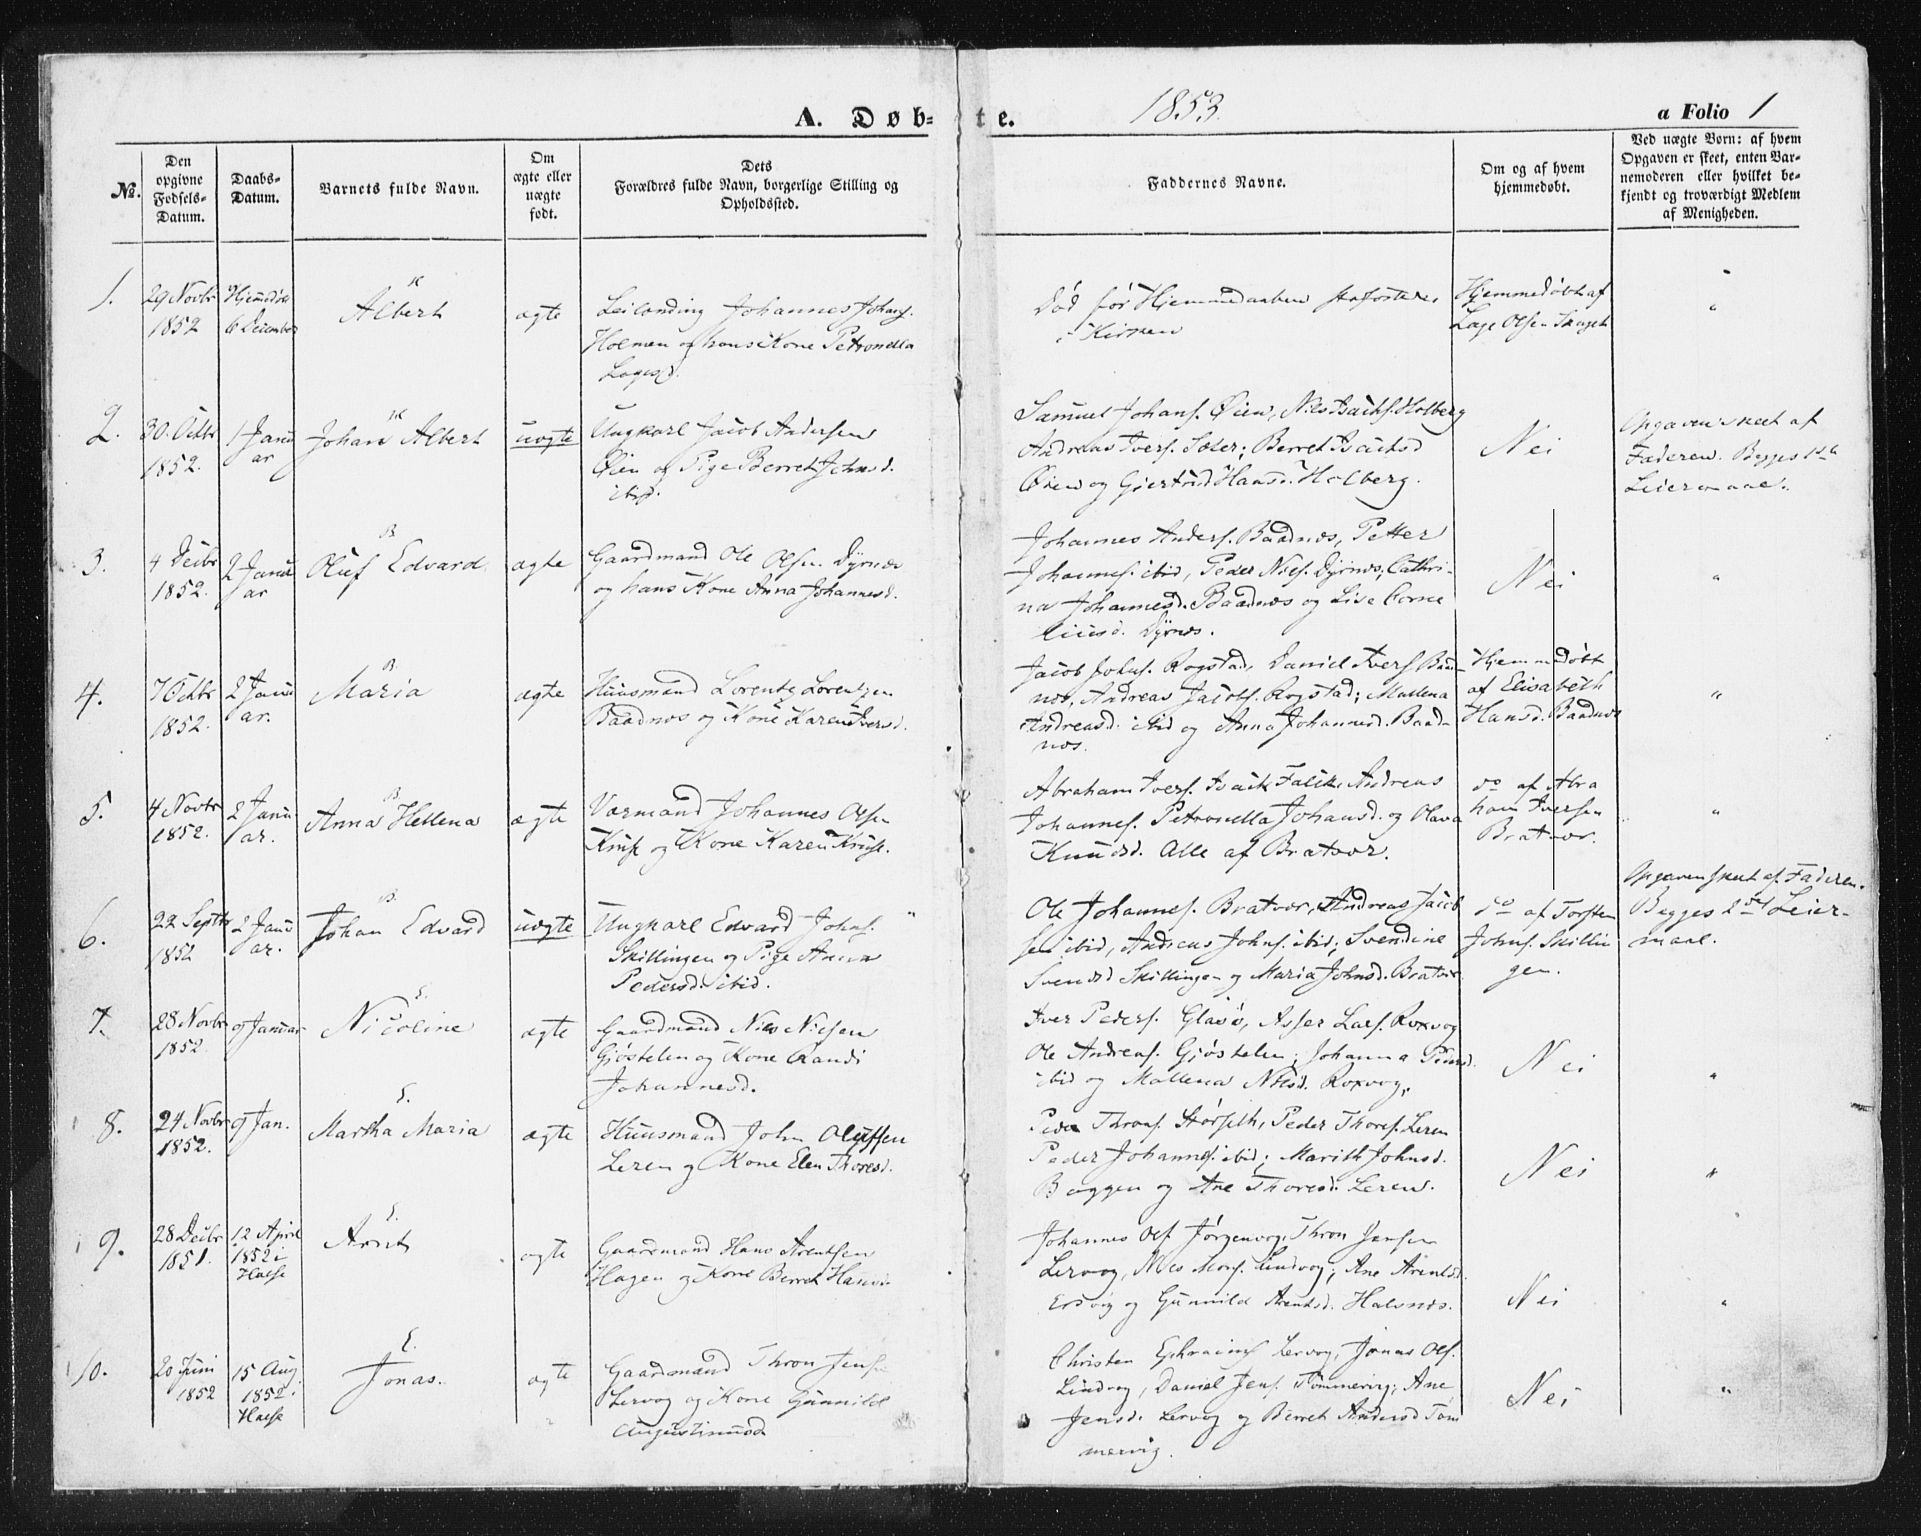 A. Døb-te. 1853. a Folio 1
№.
Den opgivne Fødsels-Datum.
Daabs-Datum.
Barnets fulde Navn.
Om ægte eller uægte født.
Dets Forældres fulde Navn, borgerlige Stilling og Opholdssted.
Faddernes Navne.
Om og af hvem hjemmedøbt.
Ved uægte Børn: af hvem Opgaven er skeet, enten Bar-nemoderen eller hvilket be-kjendt og troværdigt Medlem af Menigheden.
1.
29 Novbr
1852
6 December
K
Albert
ægte
Leilending Johannes Johans.
Holmen og hans Kone Petronella
Lagesd.
Død før Hjemmedaaben
i Kirken
Hjemmedøbt af
Lage Olsen Skaget
"
2.
30. Octbr
1852.
1 Janu
ar
K
Johan Albert
uægte
Ungkarl Jacob Andersen
Øien og Pige Berret Johnsd.
ibid.
Samuel Johans. Øien, Nils Isachs. Holberg
Andreas Ivers. ; Berret Isachsd
Øien og Gjertrud Hansd. Holberg.
Nei
Opgaven skeet af
Faderen. Begges 1ste
Leiermaal.
3.
4 Decbr
1852.
2 Janu
ar
B
Oluf Edvard
ægte
Gaardmand Ole Olsen Dyrnæs
og hans Kone Anna Johannesd.
Johannes Anders. Baadnæs, Petter
Johannes. ibid, Peder Niels. Dyrnæs; Cathri-
na Johannesd. Baadnæs og Lise Corne
liusd. Dyrnæs.
Nei
"
4.
7 Octbr
1852.
2 Janu
ar.
B
Maria
ægte
Huusmand Lorentz Lorentzen
Baadnæs og Kone Karen Iversd.
Jacob Johns. Rogstad, Daniel Ivers Baad-
næs, Andreas Jacobs. Rogstad; Mallena
Andreasd. ibid og Anna Johannesd. Baad-
næs.
Hjemmedøbt
af Elisabeth
Hansd. Baadnæs
"
5.
4 Novbr
1852.
2 Janu
ar.
B
Anna Hellena
ægte
Værmand Johannes Olsen
og Kone Karen
Abraham Ivers. Isack Falck, Andreas
Johannes. Petronella Johansd. og Olava
Knudsd. Alle af Bratvær.
do af Abra
ham Iversen
Bratvær.
"
6.
22 Septbr
1852
2 Janu
ar.
B
Johan Edvard
uægte
Ungkarl Edvard Johns.
Skillingen og Pige Anna
Pedersd. ibid.
Ole Johannes. Bratvær, Andreas Jacob
sen ibid, Andreas Johns. ibid; Svendine
Svendsd Skillingen og Maria Johnsd. Bratvær
do af Torsten
Johns. Skillin
gen.
Opgaven skeet af Faderen.
Begges 2det Leier-
maal.
7.
28 Novbr
1852.
9 Januar
E.
Nicoline
ægte
Gaardmand Niels Nielsen
Gjøstelen og Kone Randi
Johannesd.
Iver Peders. Glasø, Asser Lars. Roxvog
Ole Andreas. Gjøstelen; Johanna Pedersd.
ibid og Mallena Nilsd. Roxvog.
Nei
"
8.
24 Novbr
1852.
9 Jan.
E.
Martha Maria
ægte
Huusmand John Oluffsen
Leren og Kone Elen Thoresd.
Peder Throns. Størseth, Peder Thores. Leren
Peder Johannes. ibid; Marith Johnsd.
Boggen og Ane Thoresd. Leren.
Nei
"
9.
28 Decbr
1851.
12 April
1852 i
Halse
E.
Arnt
ægte
Gaardmand Hans Arentsen
Hagen og Kone Berret Hansd.
Johannes Ols Jørgenvog, Thron Jensen
Lervog, Nils Mons. Lindvog; Ane Arentsd.
Ersvig og Gunnild Arentsd. Halsnæs.
Nei
"
10.
20 Juni
1852
15 Aug.
1852 i
Halse
E.
Jonas.
ægte
Gaardmand Thron Jensen
Lervog og Kone Gunnild
Augustinusd
Christen Ephraims Lervog, Jonas Ols.
Lindvog, Daniel Jens. Tømmervig; Ane
Jensd. Lervog og Berret Andersd Tøm
mervig.
Nei
"